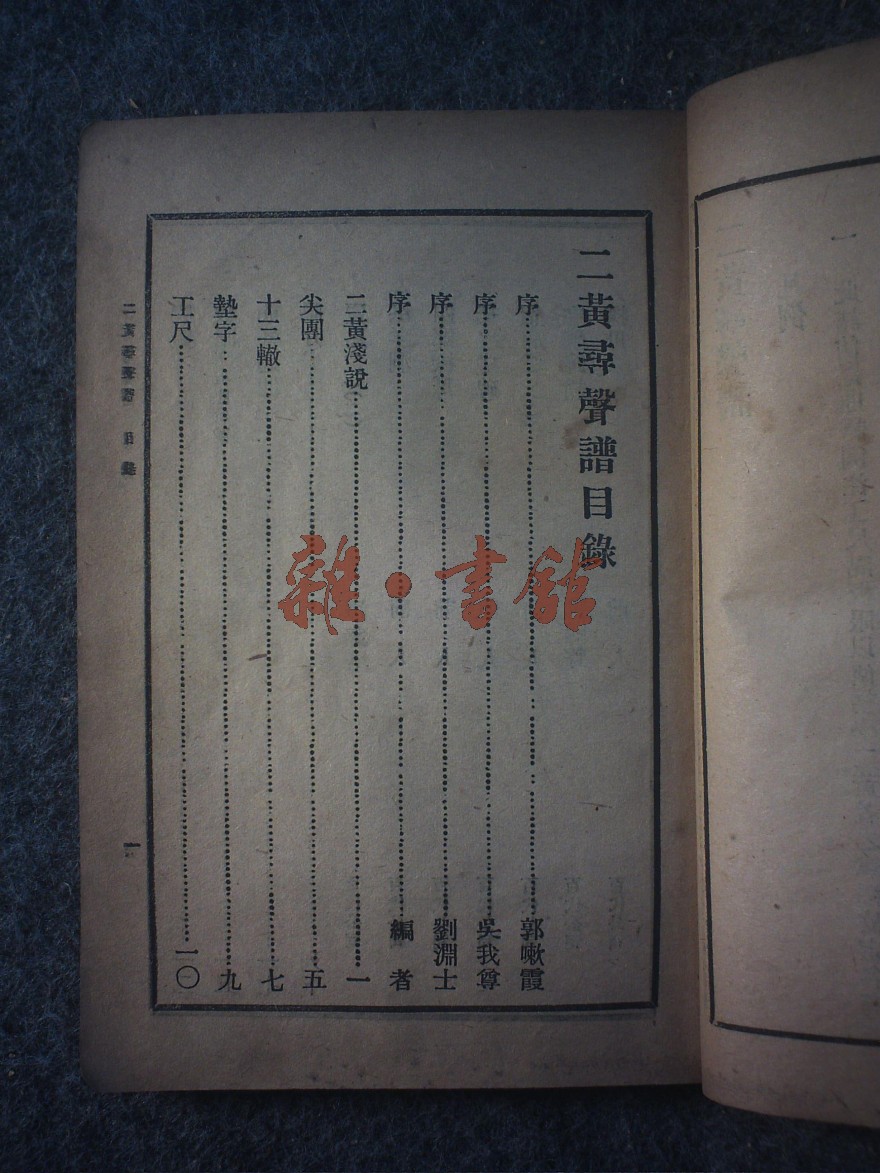 二黃尋聲譜目錄
序……郭嗽霞
序……吳我尊
序……劉淵士
序……編者
二黃淺說……一
尖團……五
十三轍……七
墊字……九
工尺……一〇
二黃尋聲譜 目錄
一
雜·書館